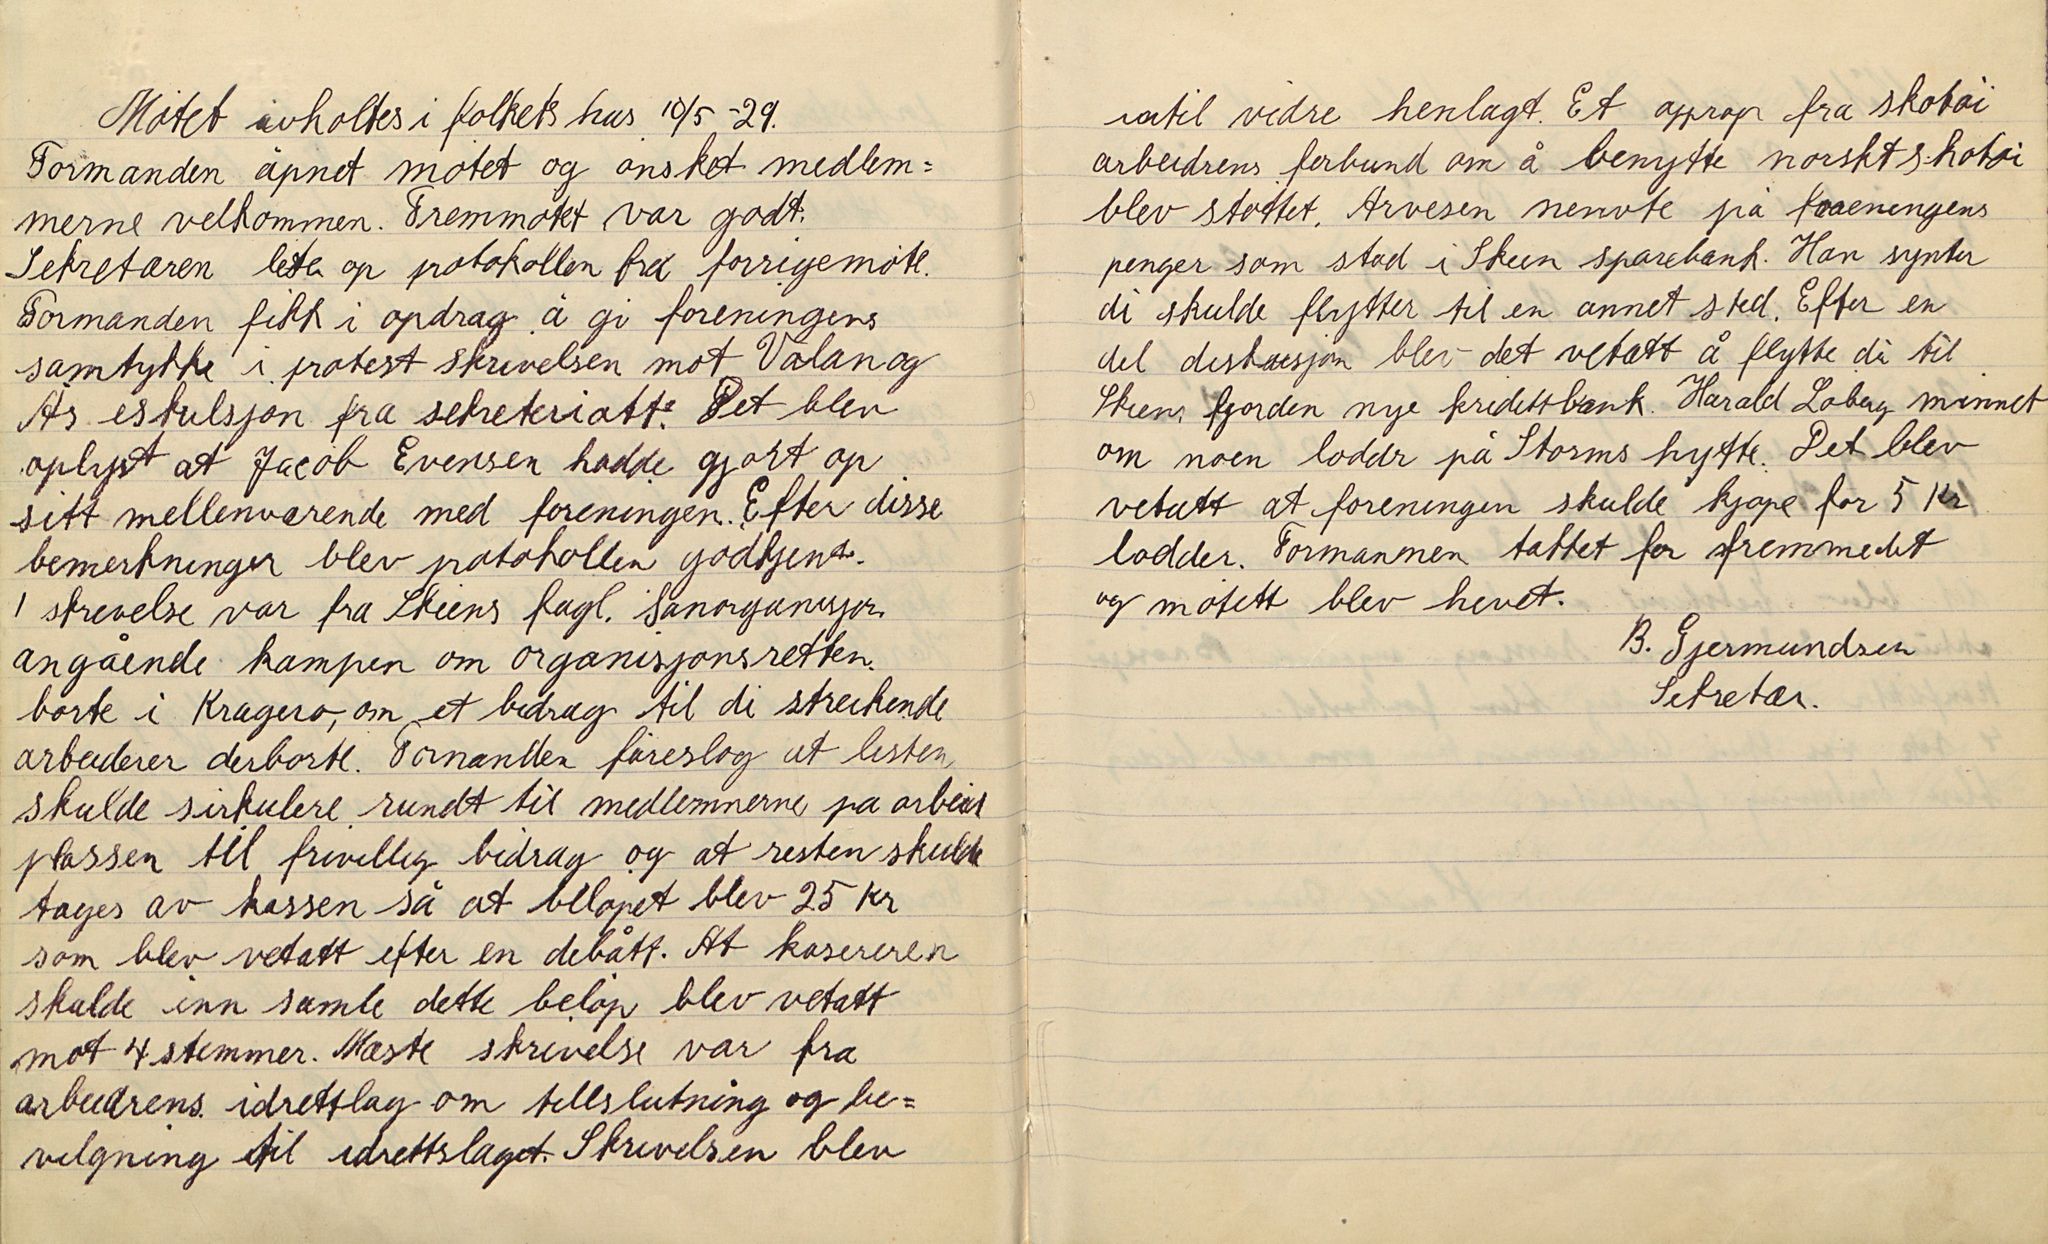 Møtet avholtes i folkets hus 10/5 -29.
Formanden åpnet møtet og ønsket medlem=
merne velkommen. Fremmøtet var godt.
Sekretæren leste op protokollen fra forrigemøte.
Formanden fikk i opdrag å gi foreningens
samtykke i protest skrivelsen mot Vølan og
Ås eskulsjon fra sekreteriatt. Det blev
oplyst at Jacob Evensen hadde gjort op
sitt mellenværende med foreningen. Efter disse
bemerkninger blev protokollen godkjent.
1 skrevelse var fra Skiens fagl. Samorganisjon
angående kampen om organisjonsretten.
borte i Kragerø, om et bidrag til di streikende
arbeiderer derborte. Formanden føreslog at listen
skulde sirkulere rundt til medlemnerne på arbeids
plassen till frivillig bidrag og at resten skulde
tages av kassen så at beløpet blev 25 Kr
som blev vetatt efter en debått. At kasereren
skulde inn samle dette beløp blev vetatt
mot 4 stemmer. Næste skrivelse var fra
arbeidrens idrettlag om tillslutning og be=
vilgning til idrettslaget. Skrivelsen blev
intil vidre henlagt. Et opprop fra skotøi
arbeidrens forbund om å benytte norskt skotøi
blev støttet. Arvesen nevnte på foreningens
penger som stod i Skien sparebank. Han synter
di skulde flytter til en annet sted. Efter en
del diskusjon blev det vetatt å flytte di til
Skiens fjorden nye kredittbank. Harald Løberg minnet
om noen loddr på Storms hytte. Det blev
vetatt at foreningen skulde kjøpe for 5 Kr
lodder. Formannen takket for fremmedt
og møtett blev hevet.
B. Gjermundsen
Sekretær.